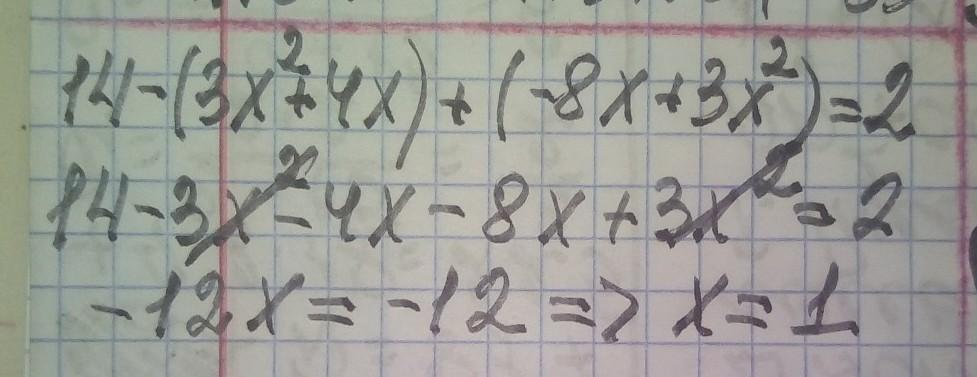 14-(3x²+4x)+(-8x+3x²)=2
14-3x²-4x-8x+3x²=2
-12x=-12=>x=1